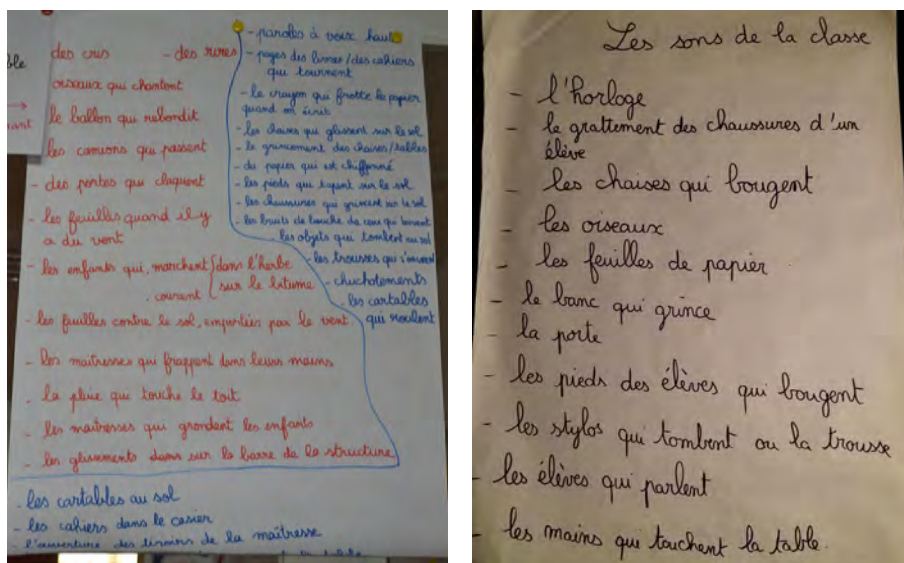 ble
ant
des cris - des rires
oiseaux qui chantent
le ballon qui rebondit
les camions qui passent
- des portes qui claquent
- les feuilles quand il y
a du vent
- les enfants qui marchent dans l'herbe
courent sur le bitume
- les feuilles contre le sol, emportées par le vent.
- les maîtresses qui frappent dans leurs mains
- la pluie qui touche le toit
- les maîtresses qui grondent les enfants
- les glissements dans sur la barre de la structure
- paroles à voix haute
- pages des livres / des cahiers
qui tournent
- le crayon qui frotte le papier
quand on écrit
- les chaises qui glissent sur le sol
- le grincement des chaises/tables
- du papier qui est chiffonné
- les pieds qui tapent sur le sol
- les chaussures qui grincent sur le sol
- les bruits de bouche de ceux qui boivent
- les objets qui tombent au sol
- les trousses qui s'ouvrent
- chuchotements
- les cartables
qui roulent
- les cartables au sol
- les cahiers dans le casier
- l'ouverture des tiroirs de la maîtresse
la table
Les sons de la classe
- l'horloge
- le grattement des chaussures d'un
élève
- les chaises qui bougent
- les oiseaux
- les feuilles de papier
- le banc qui grince
- la porte
- les pieds des élèves qui bougent
- les stylos qui tombent ou la trousse
- les élèves qui parlent
- les mains qui touchent la table.